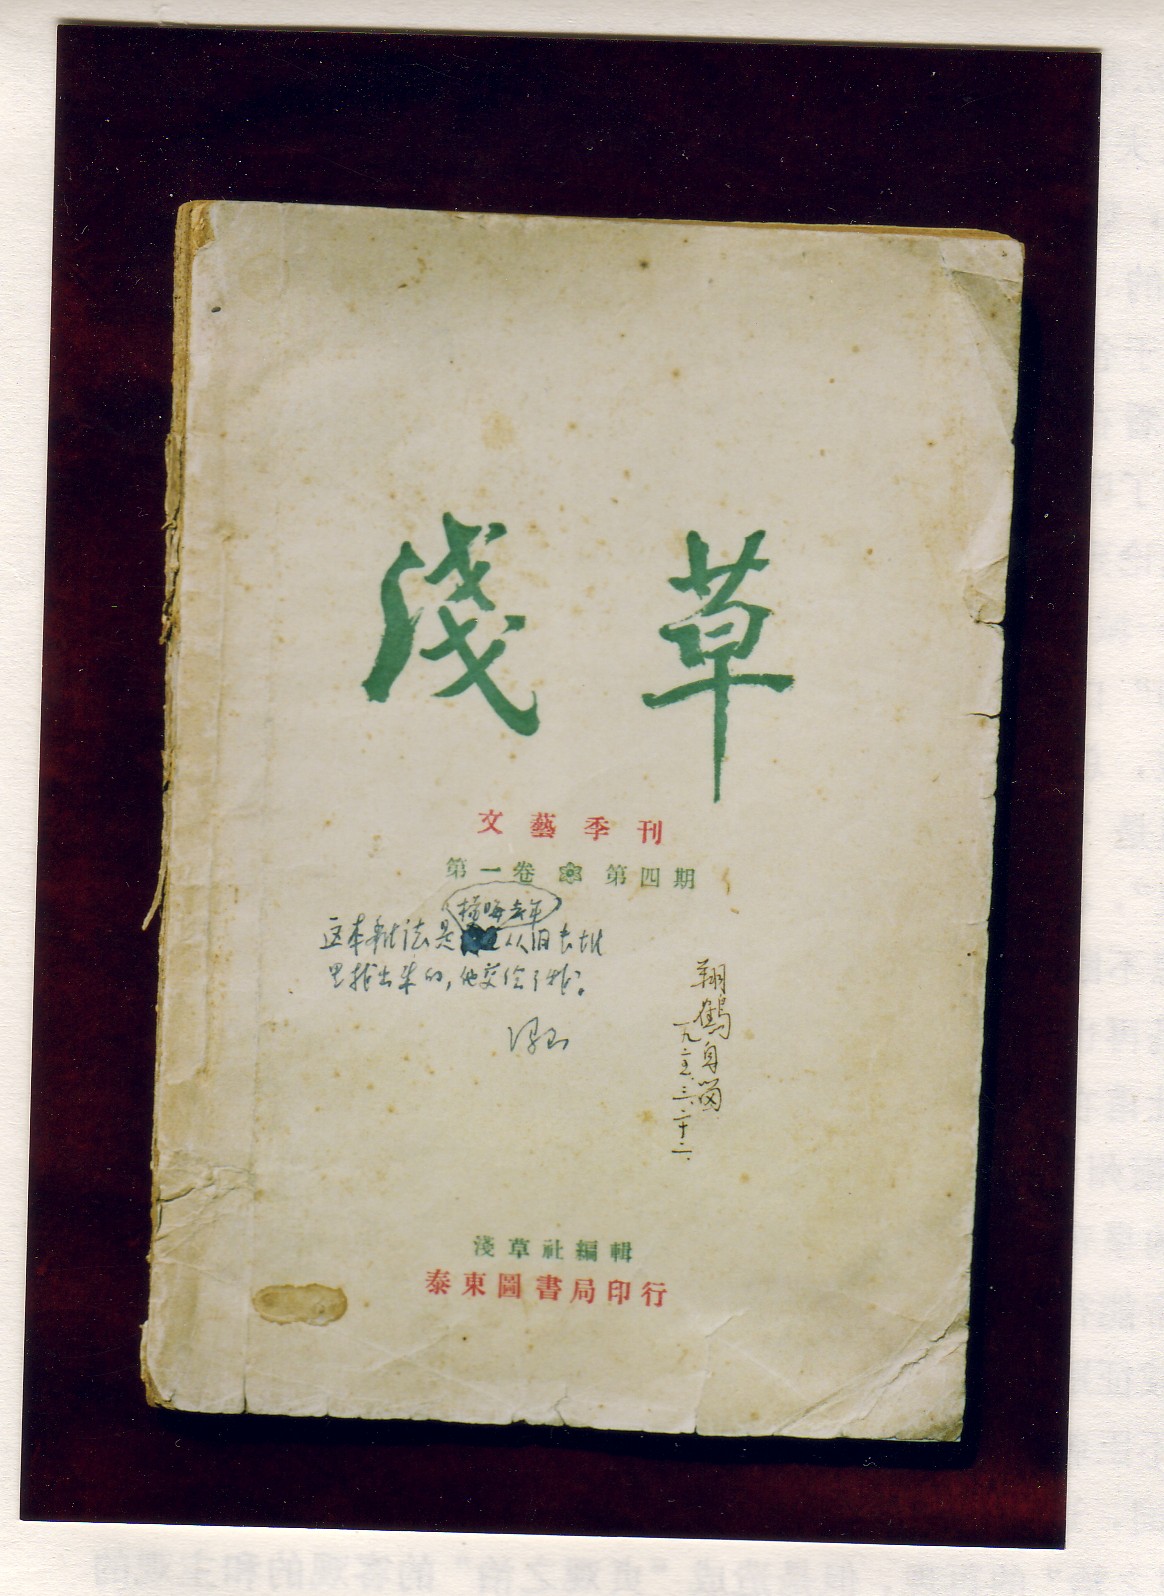 淺草
文藝季刊
第一卷 第四期
楊晦去年
这本杂志是从旧书堆
里找出来的，他交给了我。
冯至
翔鶴自留
一九二五.三.二十二.
淺草社編輯
泰東圖書局印行